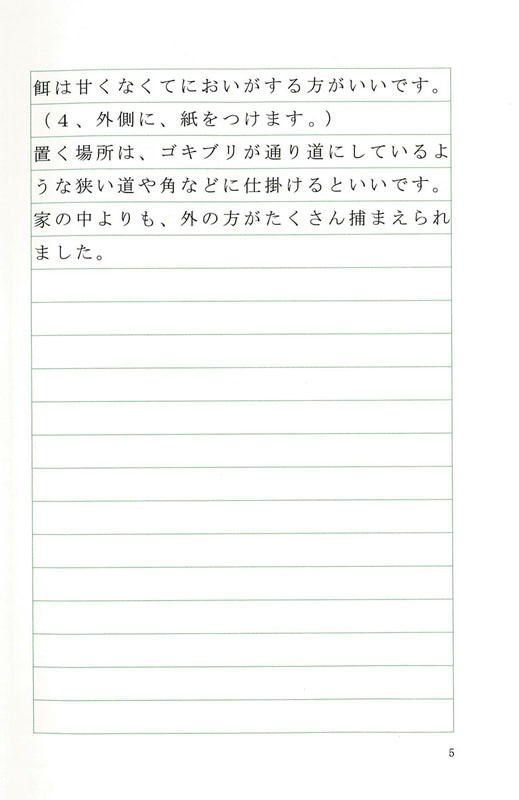 餌は甘くなくてにおいがする方がいいです。
（４、外側に、紙をつけます。）
置く場所は、ゴキブリが通り道にしているよ
うな狭い道や角などに仕掛けるといいです。
家の中よりも、外の方がたくさん捕まえられ
ました。
5